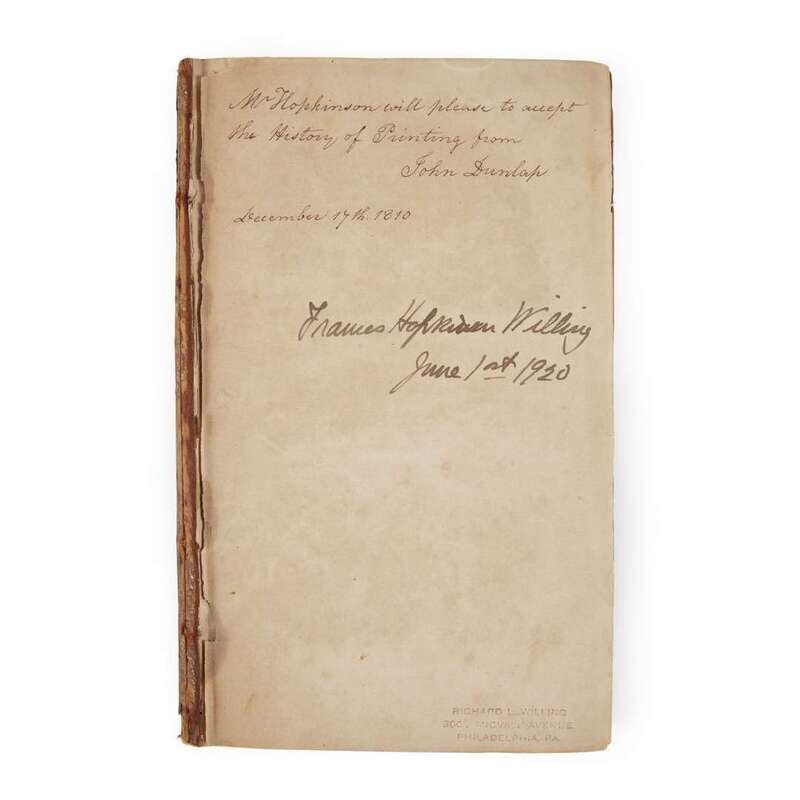 Mr Hopkinson will please to accept
the History of Printing from
John Dunlap
December 17th. 1810
Frances Hopkinson Willing
June 1st 1920
RICHARD L. WILLING
AVENUE
PHILADELPHIA, PA.